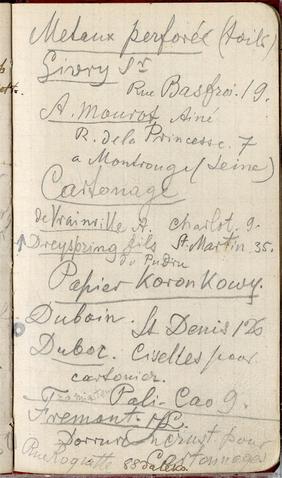 Metaux perforée (toile)
Givry Sr
Rue Basfroi. 19.
A. Mourot Ainé
R. de la Princesse. 7
a Montrouge (Seine)
Cartonage
de Vrainville R. Charlot. 9.
Dreyspring fils St. Martin 35.
Papier KoronKowy.
Dubain. St Denis 120
Duboc. Ciselles pour
cartonier.
Pali-Cao 9.
Fremont
Dorure pour
Rue Roquette 88 Cartonnages